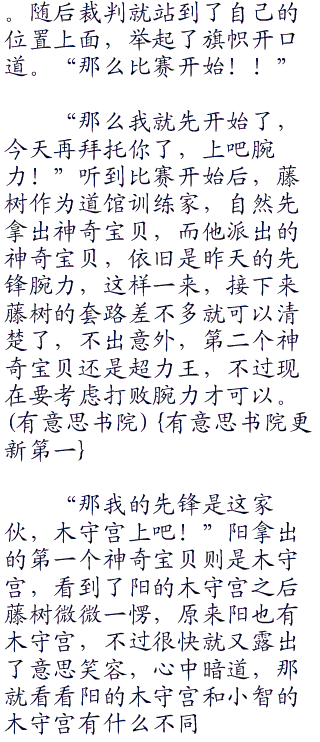 。随后裁判就站到了自己的
位置上面，举起了旗帜开口
道。“那么比赛开始！！”
“那么我就先开始了，
今天再拜托你了，上吧腕
力！”听到比赛开始后，藤
树作为道馆训练家，自然先
拿出神奇宝贝，而他派出的
神奇宝贝，依旧是昨天的先
锋腕力，这样一来，接下来
藤树的套路差不多就可以清
楚了，不出意外，第二个神
奇宝贝还是超力王，不过现
在要考虑打败腕力才可以。
(有意思书院) {有意思书院更
新第一}
“那我的先锋是这家
伙，木守宫上吧！”阳拿出
的第一个神奇宝贝则是木守
宫，看到了阳的木守宫之后
藤树微微一愣，原来阳也有
木守宫，不过很快就又露出
了意思笑容，心中暗道，那
就看看阳的木守宫和小智的
木守宫有什么不同